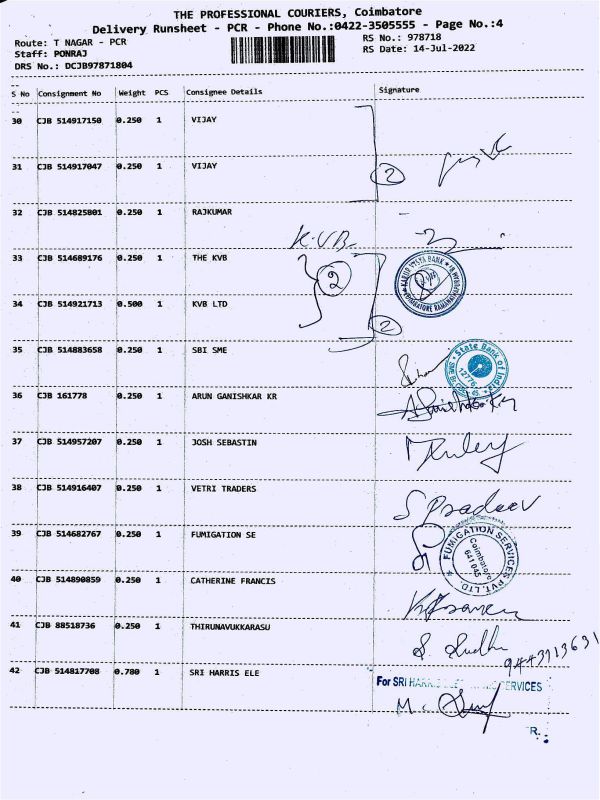 THE PROFESSIONAL COURIERS, Coimbatore
Delivery Runsheet - PCR - Phone No.:0422-3505555 - Page No.:4
Route: T NAGAR - PCR
RS No.: 978718
Staff: PONRAJ
RS Date: 14-Jul-2022
DRS No.: DCJB97871804
S No Consignment No Weight PCS Consignee Details Signature
30 CJB 514917150 0.250 1 VIJAY
31 CJB 514917047 0.250 1 VIJAY
2
32 CJB 514825801 0.250 1 RAJKUMAR
K.V.B.
33 CJB 514689176 0.250 1 THE KVB
2
KARUR VYSYA BANK
34 CJB 514921713 0.500 1 KVB LTD
2
35 CJB 514883658 0.250 1 SBI SME
State Bank of India
36 CJB 161778 0.250 1 ARUN GANISHKAR KR
37 CJB 514957207 0.250 1 JOSH SEBASTIN
38 CJB 514916407 0.250 1 VETRI TRADERS
S Pradeev
39 CJB 514682767 0.250 1 FUMIGATION SE
FUMIGATION SERVICES PVT. LTD.
Coimbatore
641 045
40 CJB 514890859 0.250 1 CATHERINE FRANCIS
41 CJB 88518736 0.250 1 THIRUNAVUKKARASU
S. Sudha
9443713631
42 CJB 514817708 0.780 1 SRI HARRIS ELE
For SRI HARRIS SERVICES
M.
R.